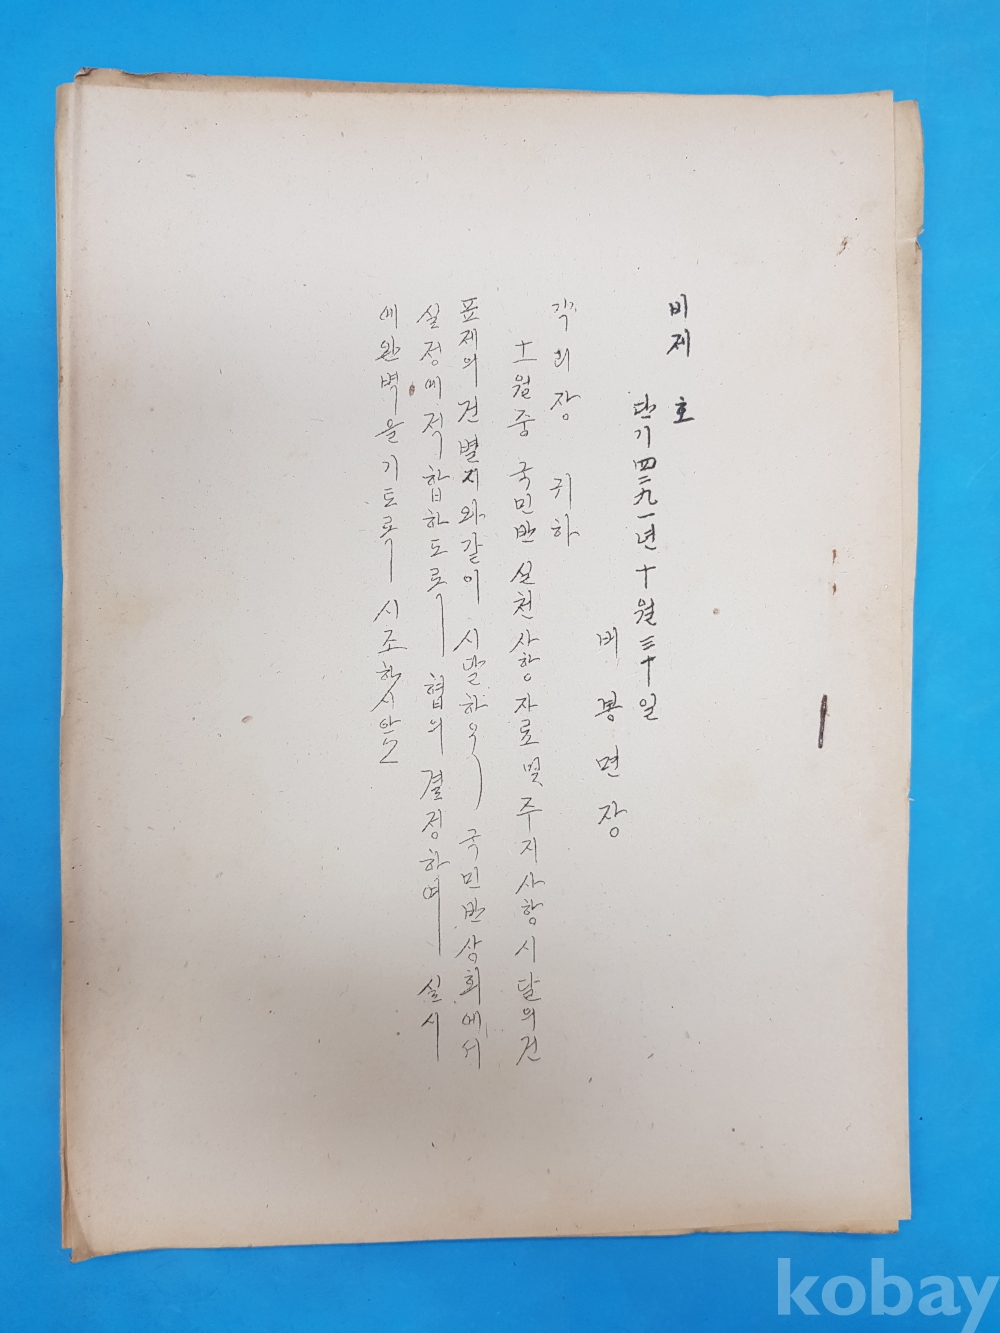 비제 호
단기 四二九一년 十월 三十일
비봉면장
각 리장 귀하
十一월중 국민반 실천사항 자료 및 주지사항 시달의 건
표제의 건 별지와 같이 시달하오 국민반상회에서
실정에 적합하도록 협의 결정하여 실시
에 완벽을 기도록 시조하시압
kobay